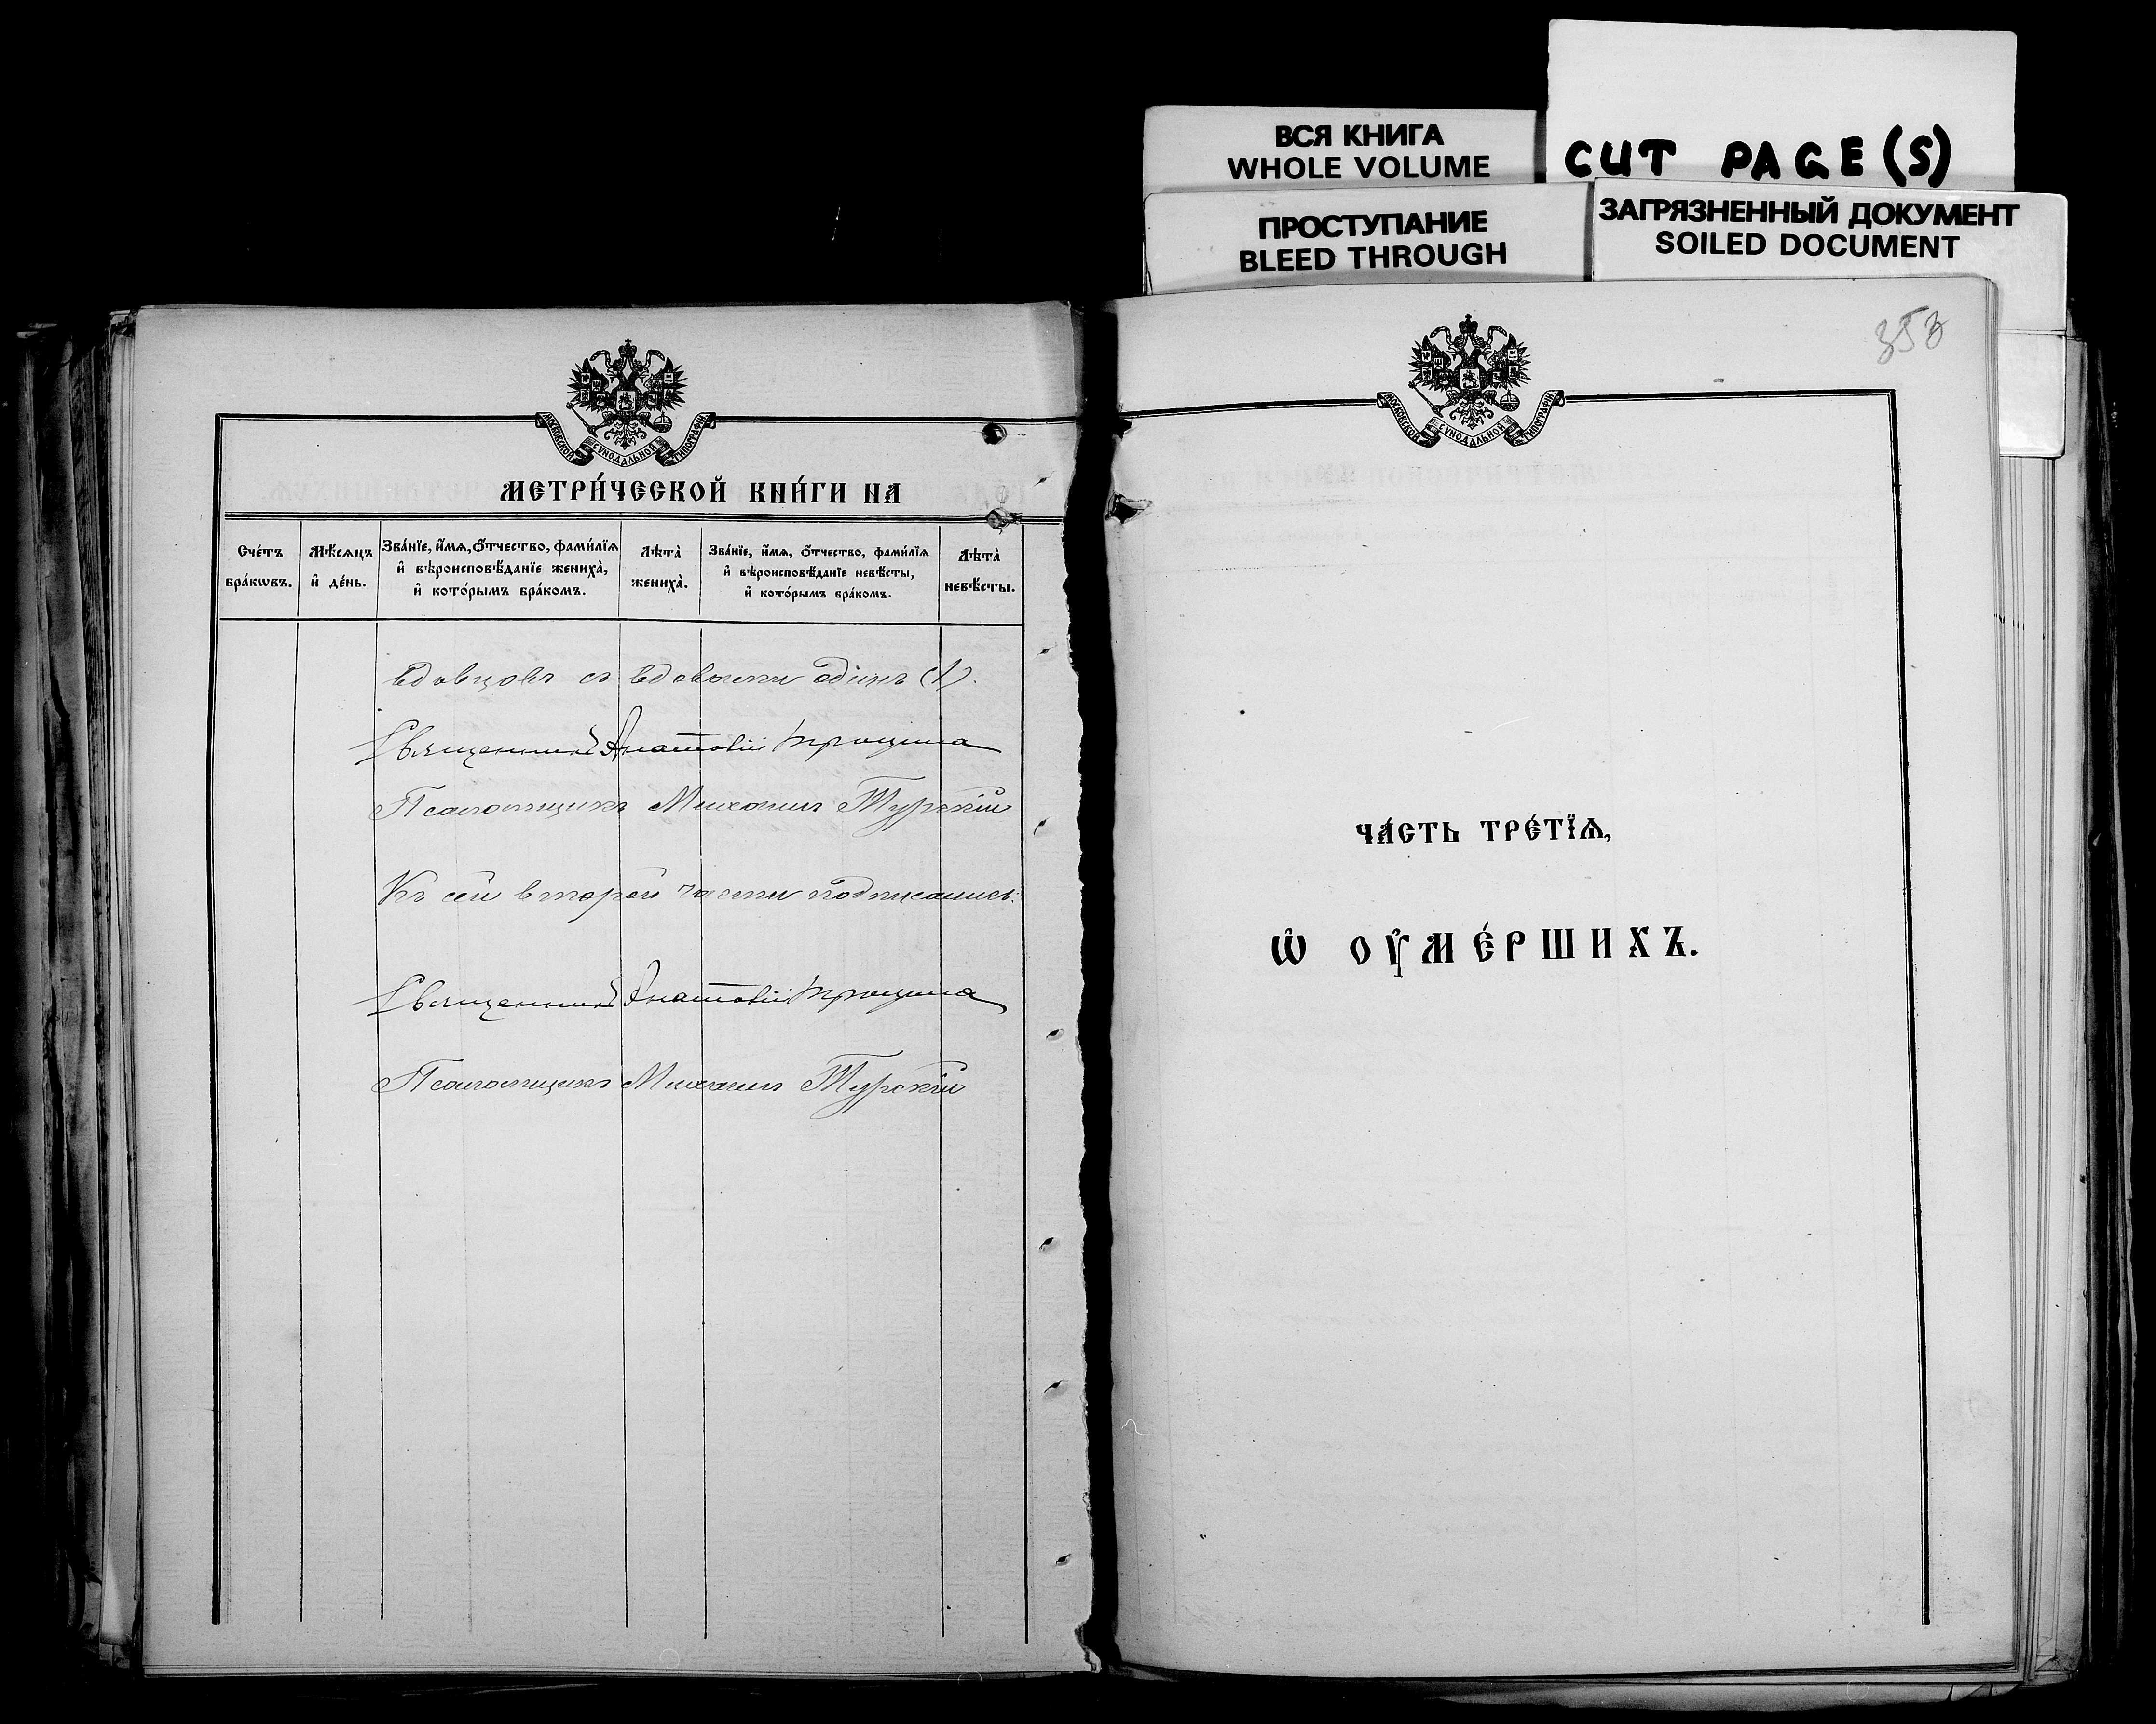 ВСЯ КНИГА
WHOLE VOLUME
CUT PAGE(S)
ПРОСТУПАНИЕ
BLEED THROUGH
ЗАГРЯЗНЕННЫЙ ДОКУМЕНТ
SOILED DOCUMENT
МОСКОВСКОЙ СУНОДАЛЬНОЙ ТИПОГРАФІИ
МЕТРИ́ЧЕСКОЙ КНИ́ГИ НА
Сче́тъ бра́кѡвъ.
Мѣ́сѧцъ и҆ де́нь.
Зва́нїе, и҆́мѧ, ѻ҆́тчество, фами́лїѧ
и҆ вѣроисповѣ́данїе жениха̀,
и҆ кото́рымъ бра́комъ.
Лѣта̀ жениха̀.
Зва́нїе, и҆́мѧ, ѻ҆́тчество, фами́лїѧ
и҆ вѣроисповѣ́данїе невѣ́сты,
и҆ кото́рымъ бра́комъ.
Лѣта̀ невѣ́сты.
вдовцовъ съ вдовами одинъ (1).
Священникъ Анатолій
Псаломщикъ Михаилъ Турскій
Къ сей второй части подписались:
Священникъ Анатолій
Псаломщикъ Михаилъ Турскій
353
МОСКОВСКОЙ СУНОДАЛЬНОЙ ТИПОГРАФІИ
ЧА́СТЬ ТРЕ́ТЇѦ,
Ѡ҆ ОУ҆МЕ́РШИХЪ.